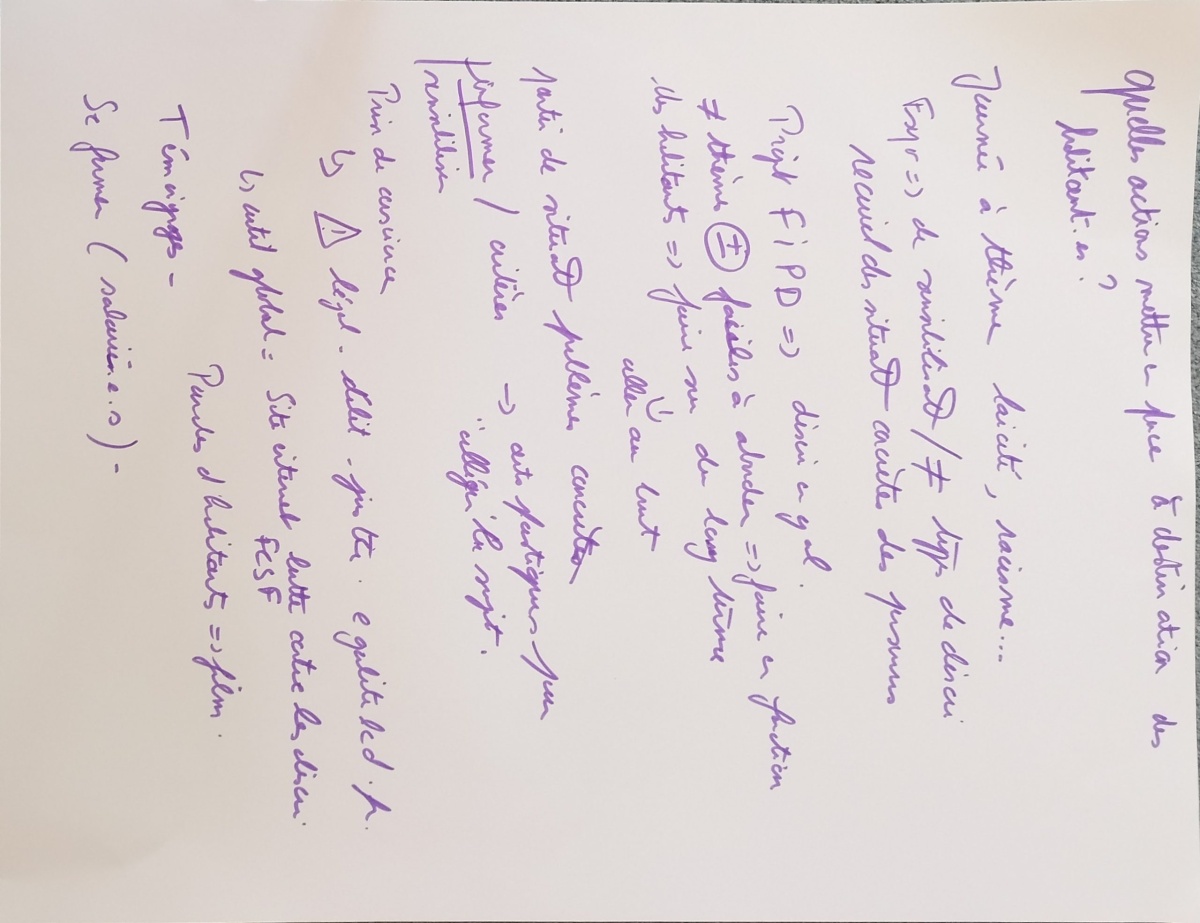 Quelles actions mettre en place à destination des
habitant.es ?
Journée à thème laïcité, racisme...
Expo => de sensibilisat° / ≠ types de discri
recueil des situat° concrètes des personnes
Projet FIPD => discri en gal.
≠ thèmes ± faciles à aborder => faire en fonction
des habitants => faire sur du long terme
aller au bout
partir de situat° problèmes concrètes
informer / critères -> arts plastiques pour
sensibiliser "alléger" le sujet.
Prise de conscience
↳ ⚠ légal - délit - justice. egalitelcd.fr.
↳ outil global = Site internet lutte contre les discri
FCSF
Témoignages - Paroles d'habitants => film.
Se former (salarié.e.s) -